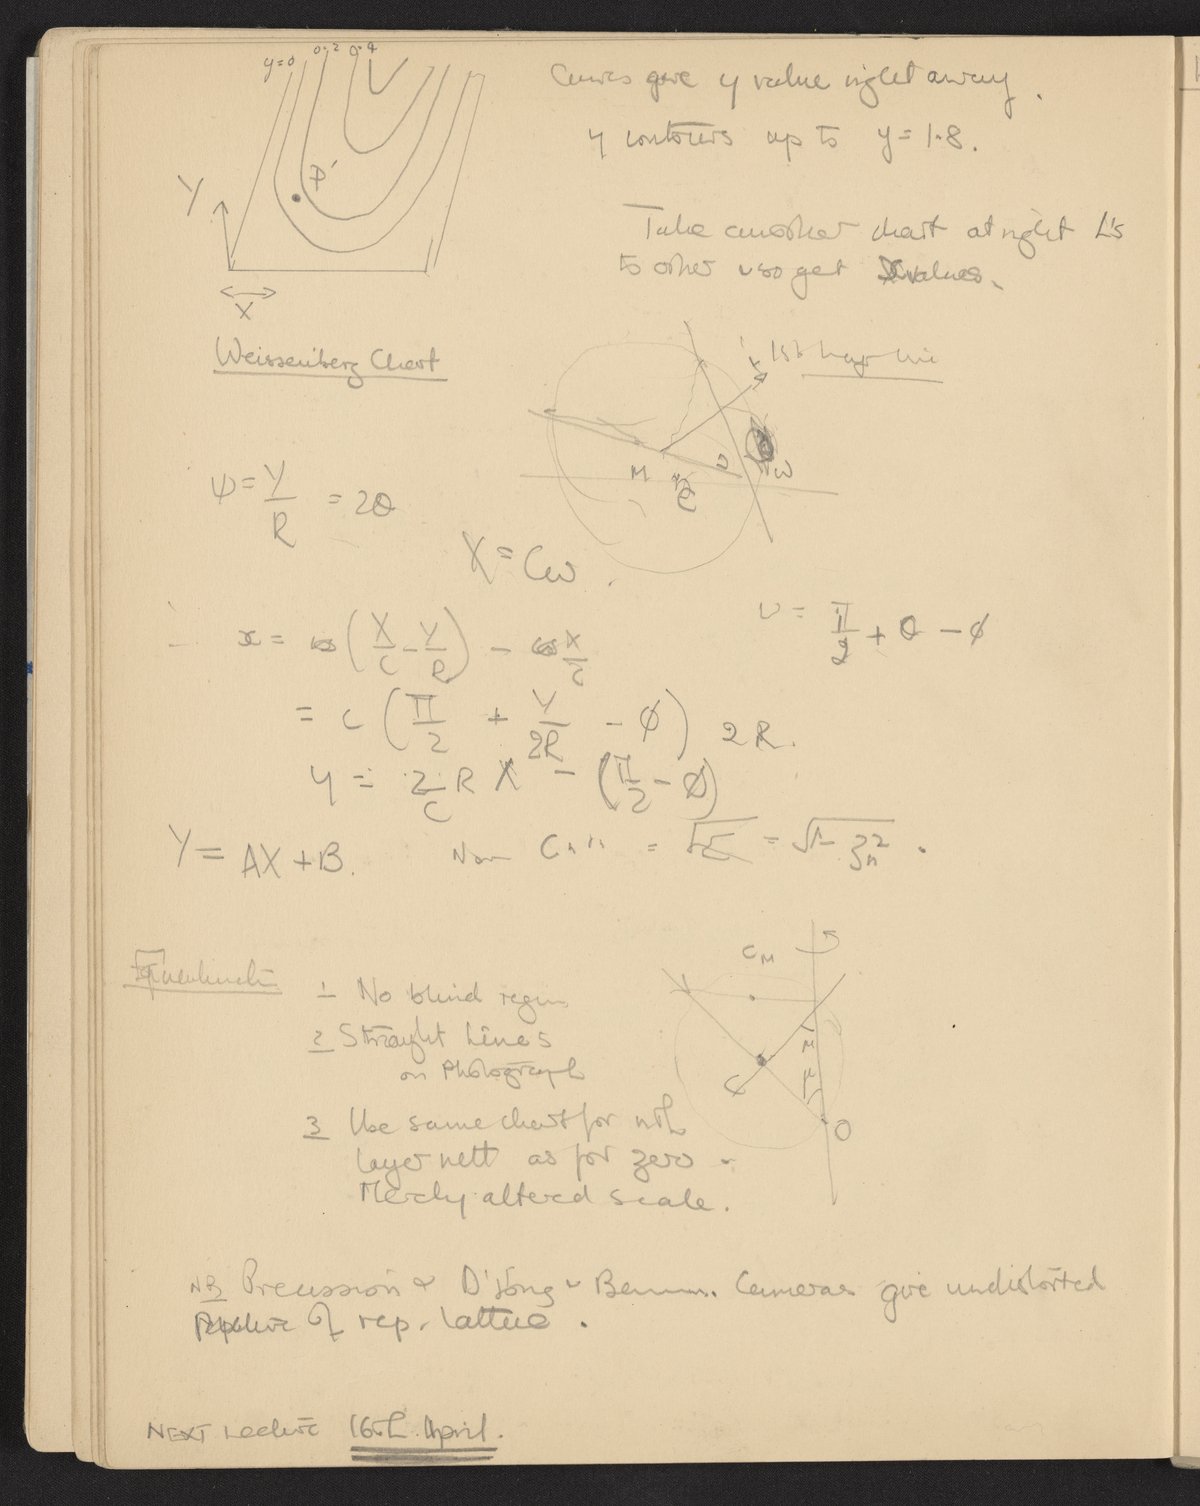 y=0 0·2 0·4
Curves give y value right away.
y contours up to y = 1·8.
P'
Y
X
Take another chart at right L's
to other & so get X values.
Weissenberg Chart
M
ω
ψ = Y/R = 2θ
X = Cω.
x = cos (X/C - Y/R) - cos X/C
= π/2 + θ - φ
= C (π/2 + Y/2R - φ) 2R.
y = 2/C R X - (π/2 - φ)
Y = AX + B. Now = = √1 - ζn²
C M
1 No blind region
2 Straight Lines
on Photograph
μ
μ
C
O
3 Use same chart for nth
layer nett as for zero -
Merely altered scale.
NB Precussion & D'Jong & Cameras give undistorted
of rep. lattice.
NEXT Lecture 16th April.